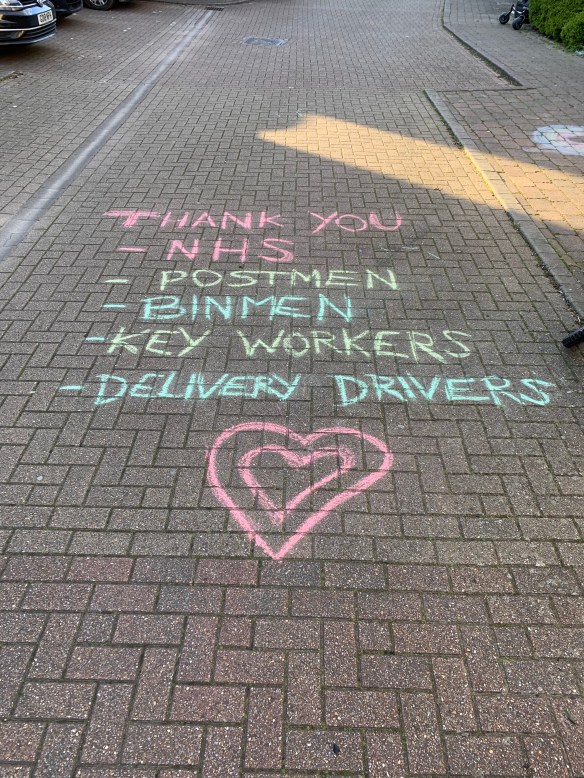 THANK YOU
- NHS
- POSTMEN
- BINMEN
- KEY WORKERS
- DELIVERY DRIVERS